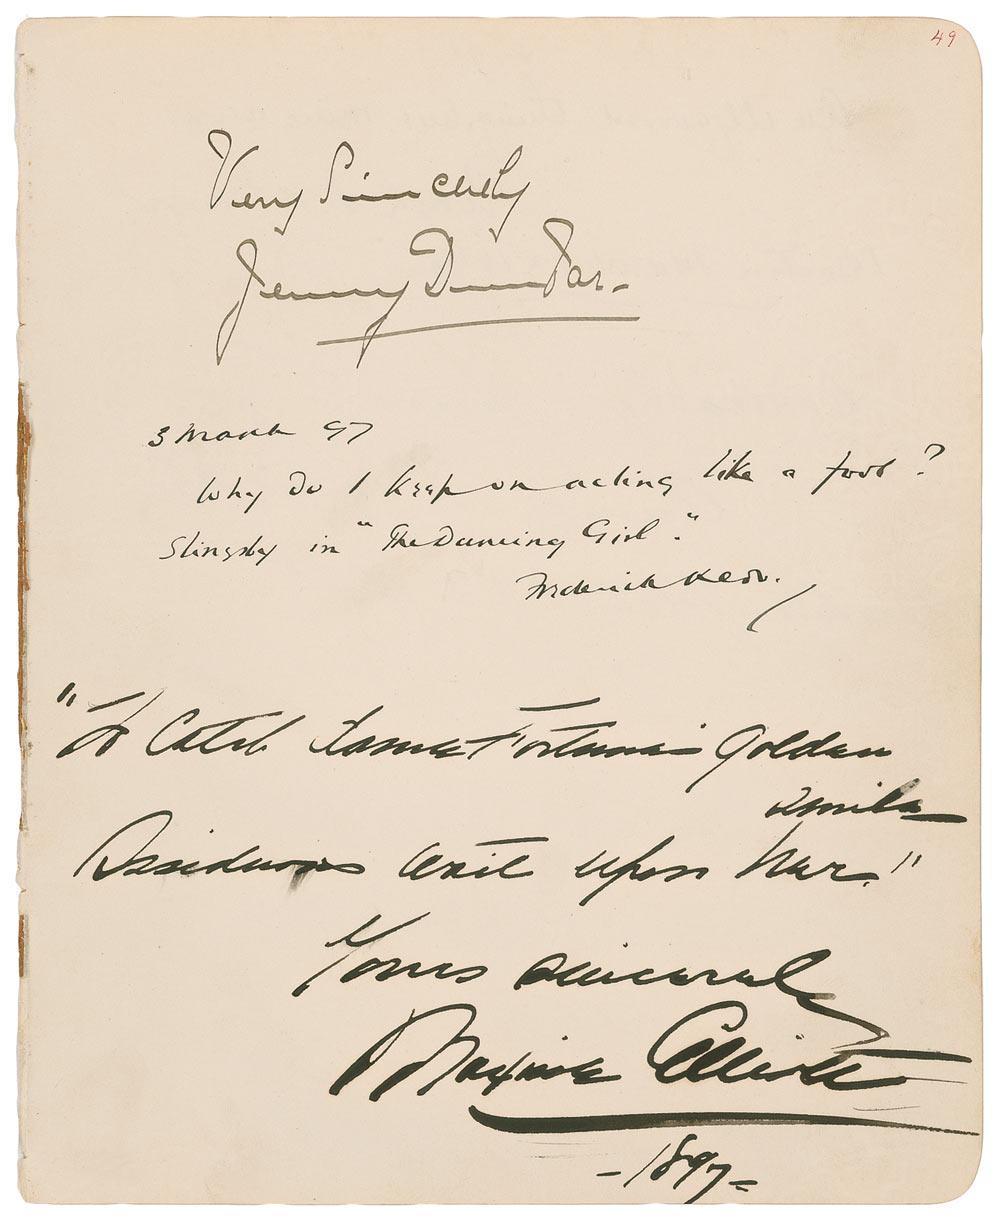 49
Very Sincerely
Jenny Dunbar.
3 March 97
Why do I keep on acting like a fool?
Slingsby in "The Dancing Girl".
Frederick Kerr.
"To Catch Dame Fortune's golden
smile
Assiduous wait upon her."
Yours sincerely
Maxine Elliott
-1897-